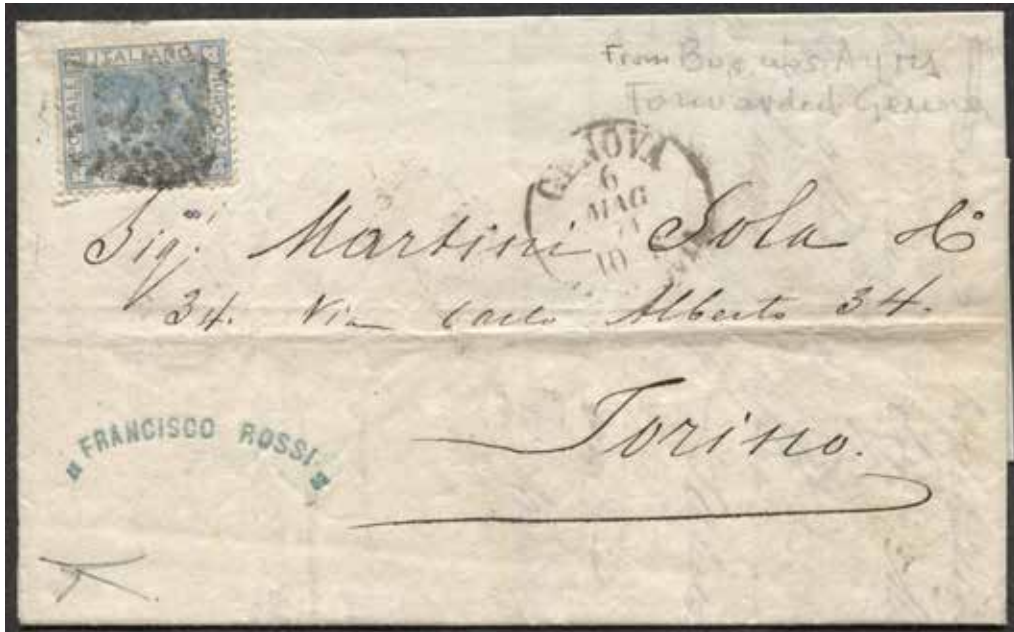 POSTALE ITALIANO 20 C
From Buenos Ayres
Forwarded Genova
GENOVA
6
MAG
71
10 M
Sig.i Martini Sola & Co
34. Via Carlo Alberto 34.
Torino.
FRANCISCO ROSSI